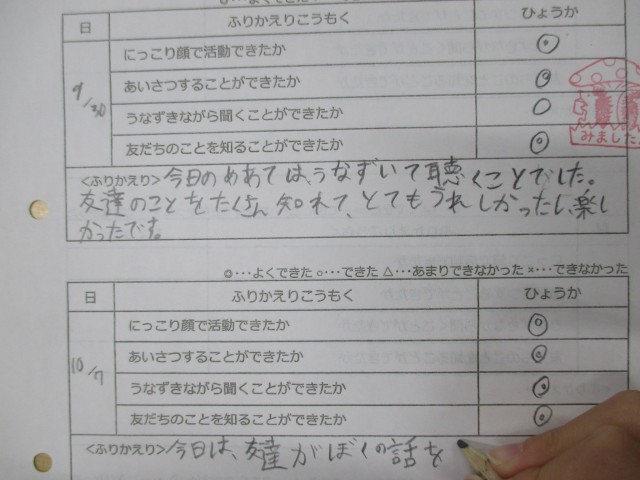 ◎…よくできた
日 ふりかえりこうもく ひょうか
9/30
にっこり顔で活動できたか ◎
あいさつすることができたか ◎
うなずきながら聞くことができたか ○
友だちのことを知ることができたか ◎
みました
<ふりかえり>今日のめあては、うなずいて聴くことでした。
友達のことをたくさん知れて、とてもうれしかったし、楽し
かったです。
◎…よくできた ○…できた △…あまりできなかった ×…できなかった
日 ふりかえりこうもく ひょうか
10/7
にっこり顔で活動できたか ◎
あいさつすることができたか ◎
うなずきながら聞くことができたか ◎
友だちのことを知ることができたか ◎
<ふりかえり>今日は、友達がぼくの話を